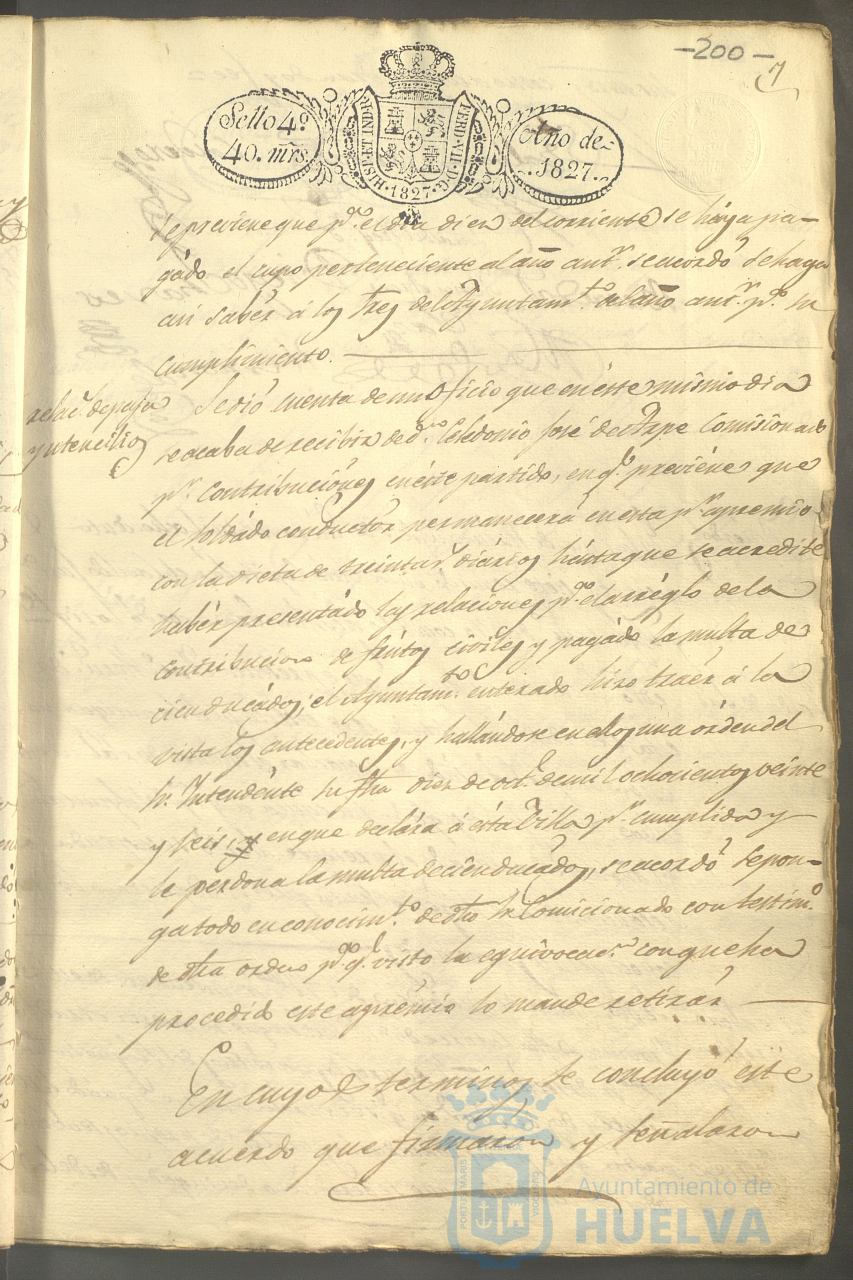 -200-
7
Sello 4º
40. mrs.
HISP. ET IND. R. FERD. VII. D. G. 1827.
Año de
1827.
se previene que pª el dia diez del corriente se haya pa-
gádo el cupo perteneciente al año antr. se acordó se haga
asi sabér á los Sres del Ayuntamto. del año antr. pª su
cumplimiento.
relacs. de paja
y utencilios
Se dió cuenta de un Oficio que en éste mismo dia
se acaba de recibir de dn. Celedonio José de Comisionado
pr. Contribuciónes en éste partido, en qe. previéne que
el soldádo conductór permanecerá en esta pr. apremio
con la dieta de treinta rs. diários hásta que se acredite
habér presentádo las relaciones pª. el arréglo de la
contribucion de frútos civíles y pagádo la multa de
cien ducádos; el Ayuntamto. enterado hizo traér á la
vista los antecedentes, y hallándose en ellos una órden del
Sr. Intendénte su fha diez de oct. de mil ochocientos veinte
y seis, en que declára á ésta Villa pr. cumplida y
le perdona la multa de cien ducádos, se acordó se pon-
ga todo en conocimto. de dho Sr. Comicionado con testimo.
de dha orden pª qe. visto la equivocacn. con que ha
procedido este aprémio lo mande retirár
En cuyos terminos se concluyó éste
acuerdo que firmaron y señalaron
Ayuntamiento de
HUELVA